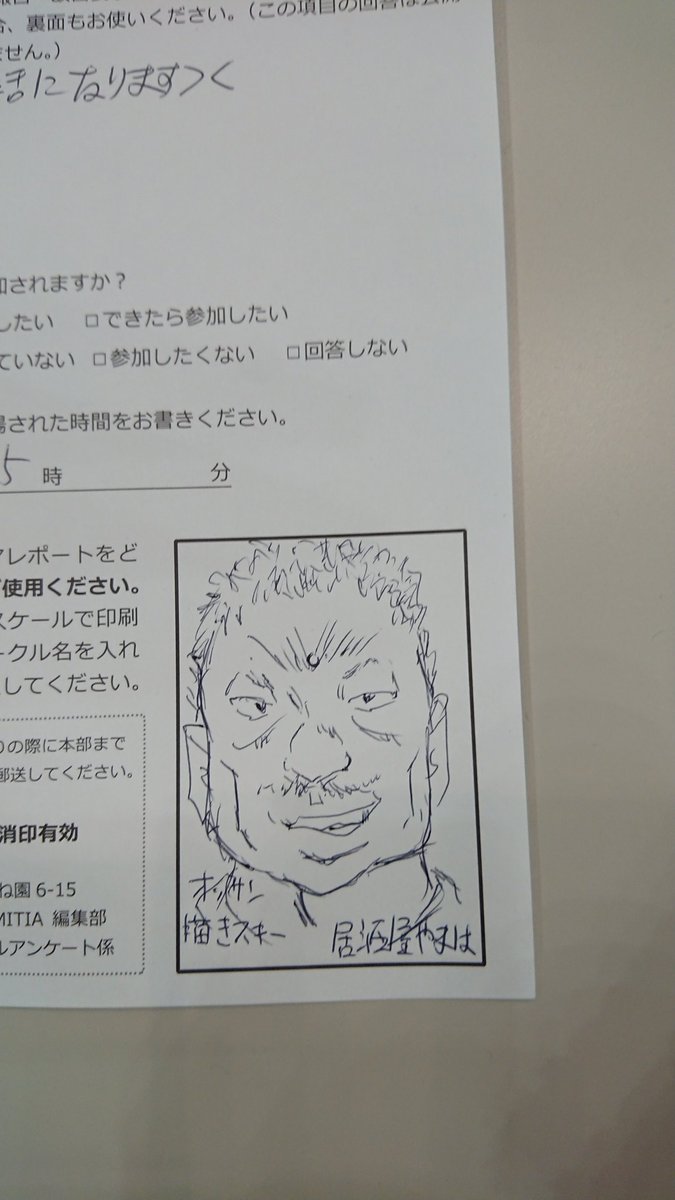 合、裏面もお使いください。（この項目の回答は公開
ません。）
になりますつく
加されますか？
したい □できたら参加したい
ていない □参加したくない □回答しない
場された時間をお書きください。
5 時 分
アレポートをど
使用ください。
スケールで印刷
ークル名を入れ
してください。
りの際に本部まで
郵送してください。
消印有効
ね園 6-15
MITIA 編集部
ルアンケート係
オッサン
描きスキー
居酒屋やまは